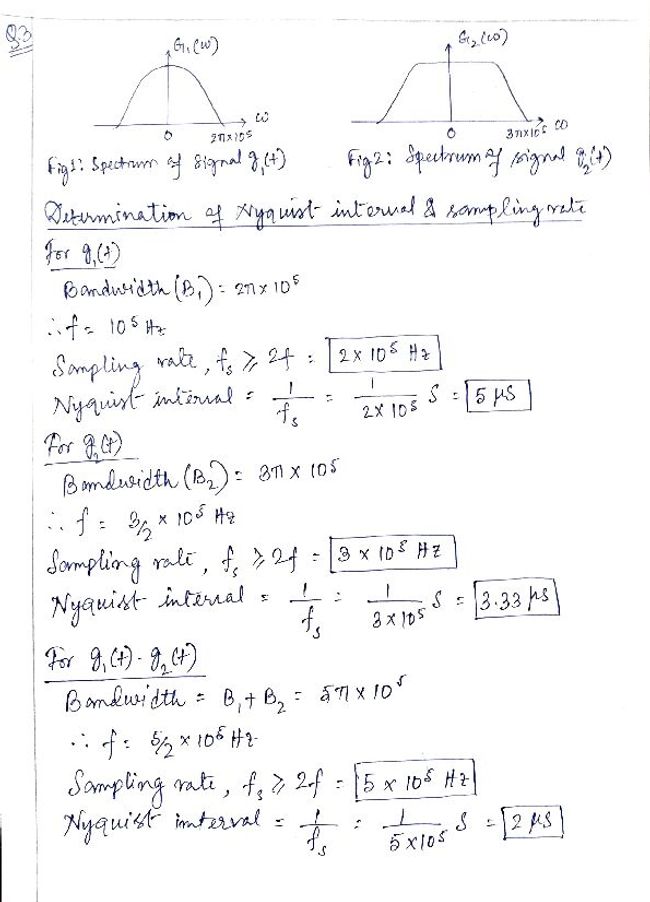 Q.3
G₁(ω)
G₂(ω)
0 2π×10⁵ ω
0 3π×10⁵ ω
Fig1: Spectrum of signal g₁(t)
Fig2: Spectrum of signal g₂(t)
Determination of Nyquist interval & sampling rate
For g₁(t)
Bandwidth (B₁) = 2π × 10⁵
∴ f = 10⁵ Hz
Sampling rate, fₛ ⩾ 2f = 2 × 10⁵ Hz
Nyquist interval = 1/fₛ = 1/(2×10⁵) S = 5 μS
For g₂(t)
Bandwidth (B₂) = 3π × 10⁵
∴ f = 3/2 × 10⁵ Hz
Sampling rate, fₛ ⩾ 2f = 3 × 10⁵ Hz
Nyquist interval = 1/fₛ = 1/(3×10⁵) S = 3.33 μs
For g₁(t) · g₂(t)
Bandwidth = B₁ + B₂ = 5π × 10⁵
∴ f = 5/2 × 10⁵ Hz
Sampling rate, fₛ ⩾ 2f = 5 × 10⁵ Hz
Nyquist interval = 1/fₛ = 1/(5×10⁵) S = 2 μS